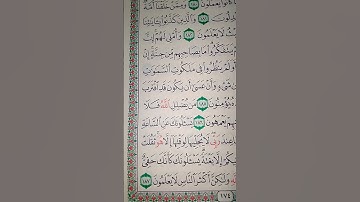 يَعْمَلُونَ ١٨٠ وَمِمَّنْ خَلَقْنَا أُمَّةٌ
وَالَّذِينَ كَذَّبُوا بِـَٔايَٰتِنَا
لَا يَعْلَمُونَ ١٨٢ وَأُمْلِى لَهُمْ إِنَّ
يَتَفَكَّرُوا مَا بِصَاحِبِهِم مِّن جِنَّةٍ إِنْ
يَنظُرُوا فِى مَلَكُوتِ السَّمَٰوَٰتِ
وَأَنْ عَسَىٰٓ أَن يَكُونَ قَدِ اقْتَرَبَ
يُؤْمِنُونَ ١٨٥ مَن يُضْلِلِ اللَّهُ فَلَا
يَعْمَهُونَ ١٨٦ يَسْـَٔلُونَكَ عَنِ السَّاعَةِ
عِندَ رَبِّى لَا يُجَلِّيهَا لِوَقْتِهَآ إِلَّا هُوَ ثَقُلَتْ
إِلَّا بَغْتَةً يَسْـَٔلُونَكَ كَأَنَّكَ حَفِىٌّ
وَلَٰكِنَّ أَكْثَرَ النَّاسِ لَا يَعْلَمُونَ ١٨٧
١٧٤